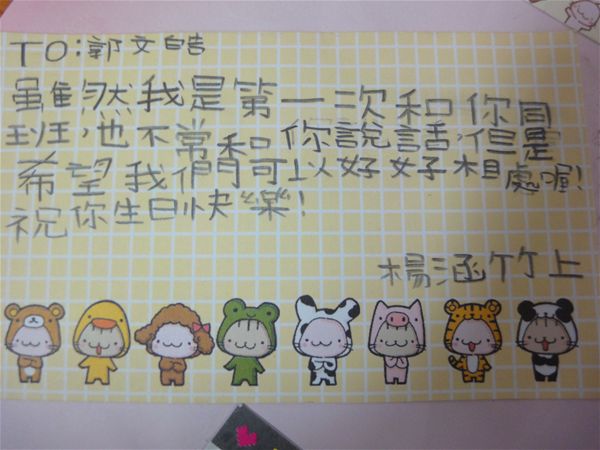 TO:郭文皓
雖然我是第一次和你同
班,也不常和你說話,但是
希望我們可以好好相處喔!
祝你生日快樂!
楊涵竹上